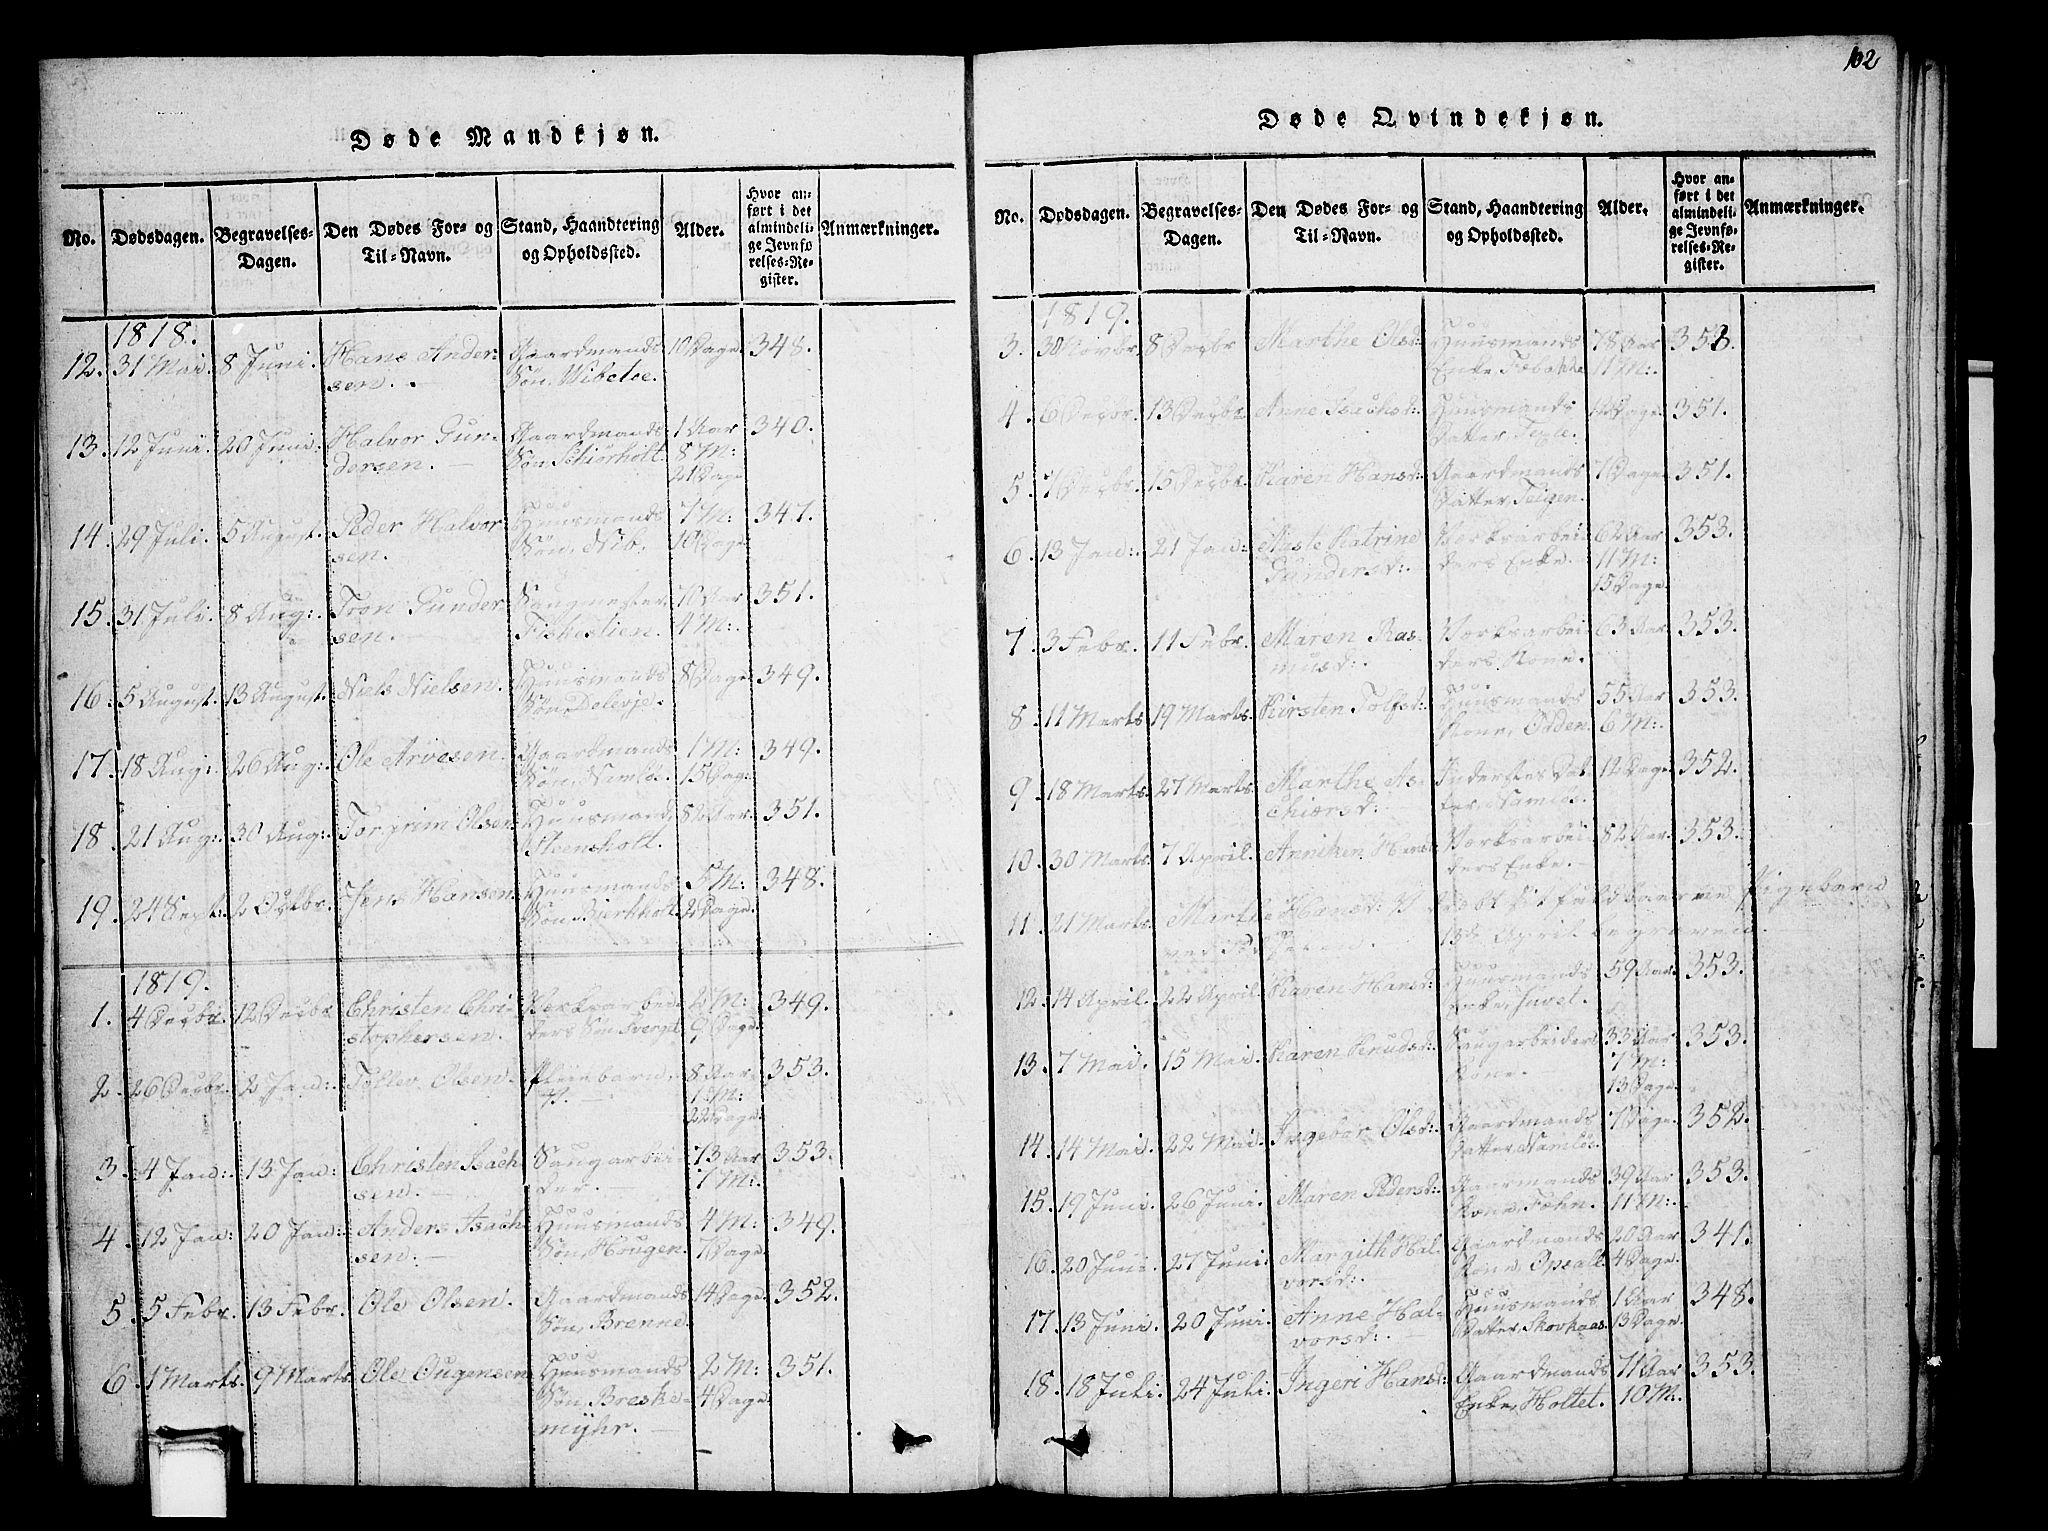 102
Døde Mandkjøn.
No. Dødsdagen. Begravelses-Dagen. Den Dødes For- og Til-Navn. Stand, Haandtering og Opholdssted. Alder. Hvor anført i det almindelige Jevnførelses-Register. Anmærkninger.
1818.
12. 31 Mai. 8 Juni. Hans Ander- Gaardmands 10 Dage 348.
sen. Søn,
13. 12 Juni. 20 Juni. Halvor Gun- Gaardmands 1 Aar 340.
dersen. Søn, Schiørholt. 8 M:
21 Dage
14. 29 Juli. 5 August. Peder Halvor- Huusmands 7 M: 347.
sen. Søn, Nib. 10 Dage
15. 31 Juli. 8 Aug: Tron Gunder- Saugmester, 70 Aar 351.
sen. 4 M:
16. 5 August. 13 August. Niels Nielsen. Huusmands 8 Dage 349.
Søn, Dolevje.
17. 18 Aug: 26 Aug: Ole Arvesen. Gaardmands 1 M: 349.
Søn, Namløs. 15 Dag:
18. 21 Aug: 30 Aug: Torgrim Olsen. Huusmand, 82 Aar. 351.
Steensholt.
19. 24 Sept: 2 Octbr. Jens Hansen. Huusmands 5 M: 348.
Søn Bierkholt. 2 Dage.
1819.
1. 4 Decbr. 12 Decbr. Christen Chri- Værksarbei- 2 M: 349.
stophersen. ders Søn 9 Dage.
2. 26 Decbr. 2 Jan: Tollev Olsen. Pleiebarn, 8 Aar 353.
1 M:
22 Dage:
3. 4 Jan: 13 Jan: Christen Isach- Saugarbei- 73 Aar 353.
sen. der. 7 M:
4. 12 Jan: 20 Jan: Anders Isach- Huusmands 4 M: 349.
sen. Søn, Hougen. 7 Dage.
5. 5 Febr. 13 Febr. Ole Olsen. Gaardmands 14 Dage. 352.
Søn, Brenne.
6. 1 Marts. 9 Marts. Ole Ougensen Huusmands 2 M: 351.
Søn, Breske- 4 Dage
myhr.
Døde Qvindekjøn.
No. Dødsdagen. Begravelses-Dagen. Den Dødes For- og Til-Navn. Stand, Haandtering og Opholdssted. Alder. Hvor anført i det almindelige Jevnførelses-Register. Anmærkninger.
1819.
3. 30 Novbr. 8 Decbr Marthe Olsd: Huusmands 78 Aar 353.
Enke, 11 M:
4. 6 Decbr. 13 Decbr. Anne Isachsd: Huusmands 12 Dage 351.
Datter,
5. 7 Decbr. 15 Decbr. Karen Hansd: Gaardmands 7 Dage 351.
Datter Teigen.
6. 13 Jan: 21 Jan: Katrine Værksarbei- 62 Aar 353.
Gundersd: ders Enke. 11 M:
15 Dage.
7. 3 Febr. 11 Febr. Maren Ras- Værksarbei- 63 Aar 353.
musd: ders Kone.
8. 11 Marts 19 Marts. Kirsten Tolfsd: Huusmands 55 Aar 353.
Kone, Odden 6 M:
9. 18 Marts. 27 Marts. Marthe As- Inderstes Dat- 12 Dage. 352.
chiærsd: ter, Namløs.
10. 30 Marts. 7 April. Anniken Hansd: Værksarbei- 82 Aar. 353.
ders Enke.
11. 21 Marts. Marthe Hansd: født fuldbaaren Pigebarn
13de April begraven.
12. 14 April. 22 April. Karen Hansd: Huusmands 59 Aar. 353.
Enke,
13. 7 Mai. 15 Mai. Karen Knudsd: Saugarbeiders 33 Aar 353.
Kone. 7 M:
13 Dage.
14. 14 Mai. 22 Mai. Ingebor Olsd: Gaardmands 7 Dage. 352.
Datter, Namløs.
15. 19 Juni. 26 Juni. Maren Pedersd: Gaarmands 39 Aar 353.
Kone, Foehn. 11 M:
16. 20 Juni. 27 Juni. Margith Hal- Gaardmands 20 Aar 341.
vorsd: Kone Opsalt. 4 Dage.
17. 13 Juni. 20 Juni. Anne Hal- Huusmands 1 Aar 348.
vorsd: Datter, Skovhaas. 13 Dage.
18. 18 Juli. 24 Juli. Ingeri Hansd: Gaardmands 71 Aar 353.
Enke, Holtet. 10 M: